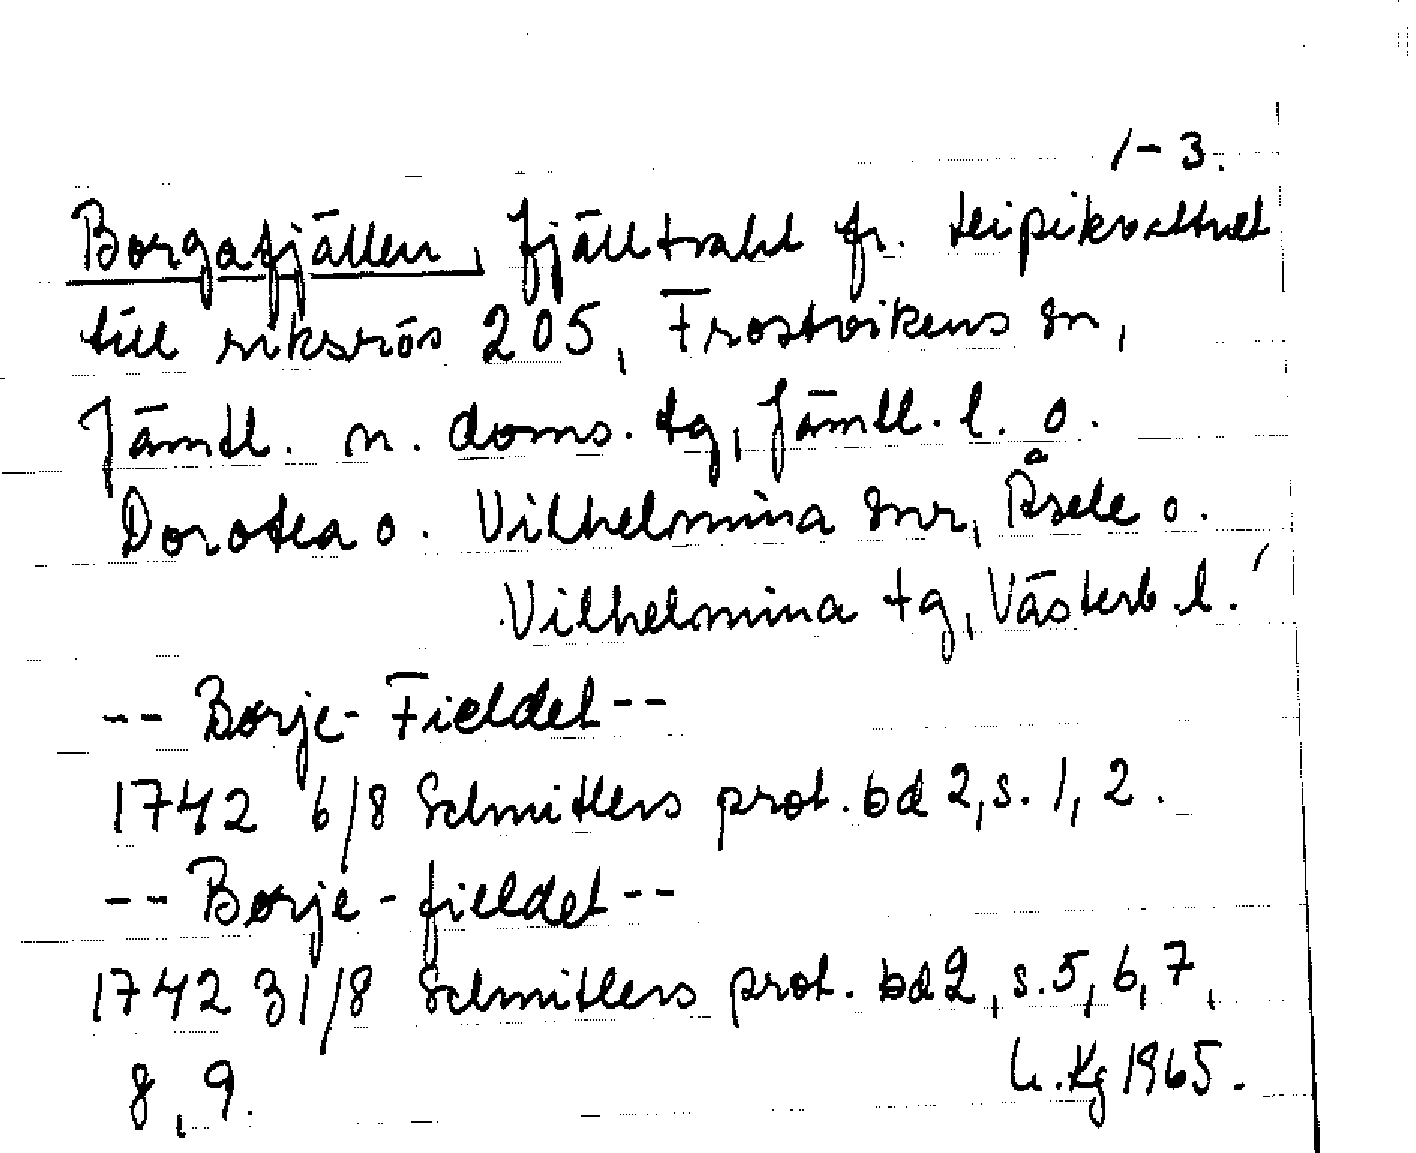 1-3.
Borgafjällen, fjälltrakt fr. Leipikvattnet
till riksrös 205, Frostvikens sn,
Jämtl. n. doms. tg, Jämtl. l. o.
Dorotea o. Vilhelmina snr, Åsele o.
Vilhelmina tg, Västerb. l.
-- Børje-Fieldet --
1742 6/8 Schnitlers prot. bd 2, s. 1, 2.
-- Børje-fieldet --
1742 31/8 Schnitlers prot. bd 2, s. 5, 6, 7,
8, 9. Kg 1965.